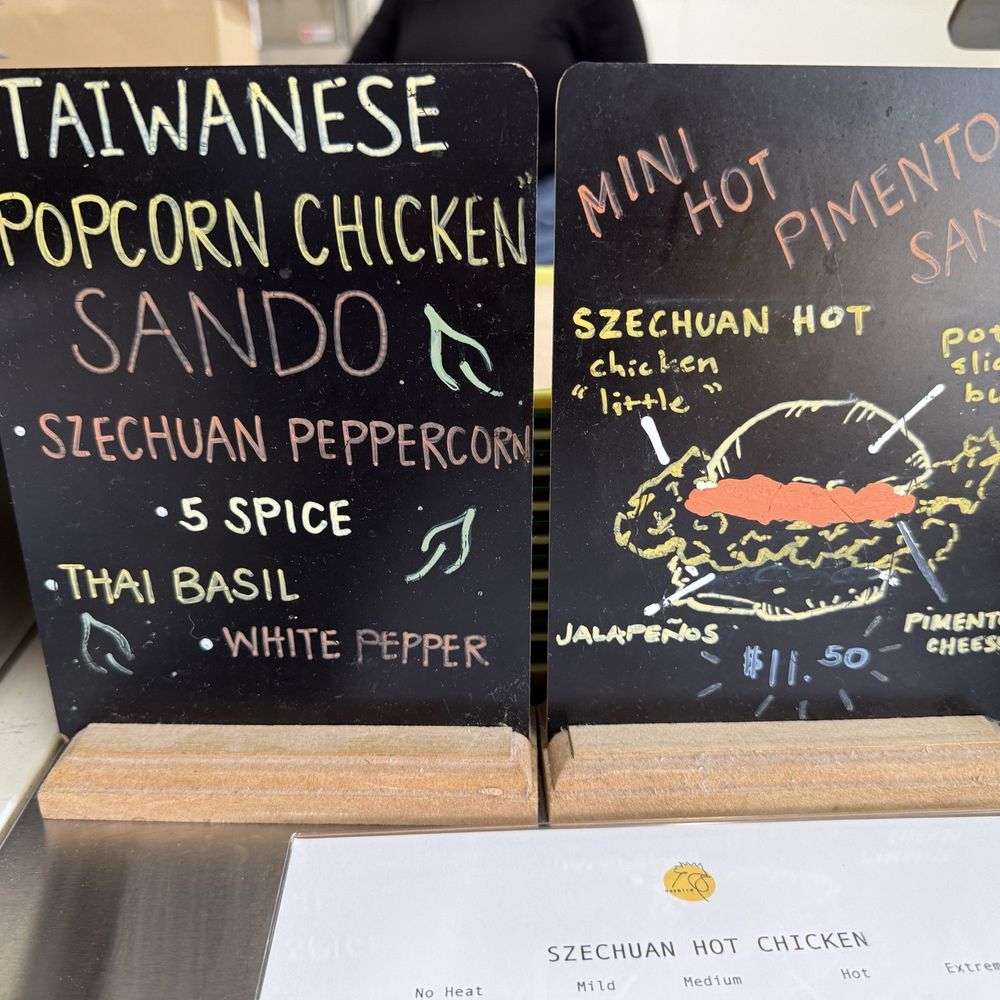 TAIWANESE
POPCORN CHICKEN"
SANDO
• SZECHUAN PEPPERCORN
• 5 SPICE
• THAI BASIL
• WHITE PEPPER
MINI
HOT
PIMENTO
SZECHUAN HOT
chicken
"little"
JALAPEÑOS
CHEESE
$11.50
SZECHUAN HOT CHICKEN
No Heat Mild Medium Hot